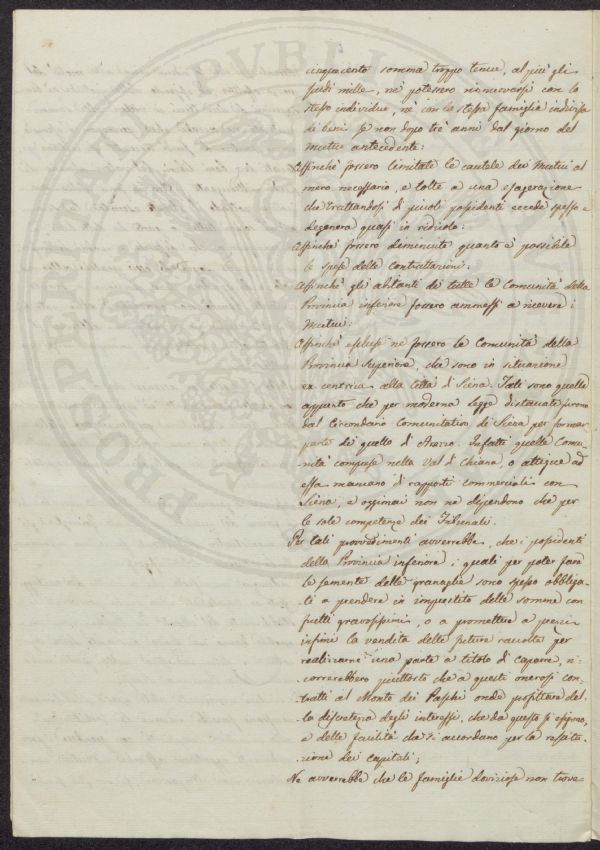 cinquecento somma troppo tenue, al più gli
scudi mille, nè potessero rinnuovarsi con lo
stesso individuo, nè con la stessa famiglia indivisa
di beni se non dopo trè anni dal giorno del
Mutuo antecedente:
Affinchè fossero limitate le cautele dei Mutui al
mero necessario, e tolte a una esagerazione
che trattandosi di piccoli possidenti eccede spesso e
degenera quasi in ridicolo:
Affinchè fossero diminuite quanto è possibile
le spese delle contrattazioni:
Affinchè gli abitanti di tutte le Comunità della
Provincia inferiore fossero ammessi a ricevere i
Mutui:
Affinchè esclusi nè fossero le Comunità della
Provincia Superiore, che sono in situazione
ex centrica alla Città di Siena. Tali sono quelle
appunto che per moderna Legge distaccate furono
dal Circondario Comunitativo di Siena per formar
parte di quello di Arezzo. Infatti quelle Comu-
nità comprese nella Val di Chiana, o attigue ad
essa mancano di rapporti commerciali con
Siena, e oggimai non ne dipendono che per
le sole competenze dei Tribunali.
Per tali provvedimenti avverrebbe, che i possidenti
della Provincia inferiore, i quali per poter fare
le semente delle granaglie sono spesso obbliga-
ti a prendere in imprestito delle somme con
frutti gravosissimi, o a promettere a prezzi
infimi la vendita delle future raccolte per
realizzarne una parte a titolo di caparre, ri-
correrebbero piuttosto che a questi onerosi con-
tratti al Monte dei Paschi onde profittare del-
la discretezza degli interessi, che da questo si esigono,
e delle facilità che si accordano per la restitu-
zione dei capitali;
Ne avverrebbe che le famiglie doviziose non trove-